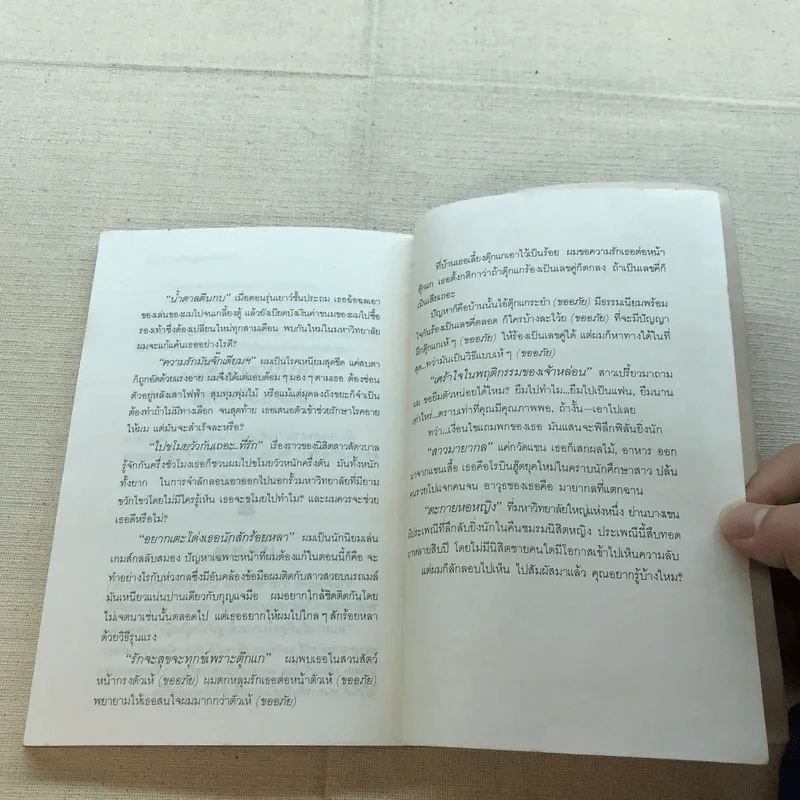 "น้ำตาลตีนกบ" เมื่อตอนรุ่นเยาว์ชั้นประถม เธอฉ้อฉลเอา
ของเล่นของผมไปจนเกลี้ยงตู้ แล้วยังเบียดบังเงินค่าขนมของผมไปซื้อ
รองเท้าซึ่งต้องเปลี่ยนใหม่ทุกสามเดือน พบกันใหม่ในมหาวิทยาลัย
ผมจะแก้แค้นเธออย่างไรดี?
"ความรักมันจั๊กเดียมฯ" ผมเป็นโรคเหนียมสุดขีด แค่สบตา
ก็ถูกอัดด้วยแรงอาย ผมจึงได้แต่แอบด้อม ๆ มอง ๆ ตามเธอ ต้องซ่อน
ตัวอยู่หลังเสาไฟฟ้า สุมทุมพุ่มไม้ หรือแม้แต่มุดลงถังขยะก็จำเป็น
ต้องทำถ้าไม่มีทางเลือก จนสุดท้าย เธอเสนอตัวเข้าช่วยรักษาโรคอาย
ให้ผม แต่มันจะสำเร็จละหรือ?
"ไปขโมยวัวกันเถอะ..ที่รัก" เรื่องราวของนิสิตสาวสัตวบาล
รู้จักกันครึ่งชั่วโมงเธอก็ชวนผมไปขโมยวัวหนักครึ่งตัน มันทั้งหนัก
ทั้งยาก ในการจำลักลอบเอาออกไปนอกรั้วมหาวิทยาลัยที่มียาม
ขวักไขว่โดยไม่มีใครรู้เห็น เธอจะขโมยไปทำไม? และผมควรจะช่วย
เธอดีหรือไม่?
"อยากเตะโด่งเธอนักสักร้อยหลา" ผมเป็นนักนิยมเล่น
เกมส์กลลับสมอง ปัญหาเฉพาะหน้าที่ผมต้องแก้ในตอนนี้ก็คือ จะ
ทำอย่างไรกับห่วงกลซึ่งมีอันคล้องข้อมือผมติดกับสาวสวยบนรถเมล์
มันเหนียวแน่นปานเดียวกับกุญแจมือ ผมอยากใกล้ชิดติดกันโดย
ไม่เจตนาเช่นนั้นตลอดไป แต่เธออยากให้ผมไปไกล ๆ สักร้อยหลา
ด้วยวิธีรุนแรง
"รักจะสุขจะทุกข์เพราะตุ๊กแก" ผมพบเธอในสวนสัตว์
หน้ากรงตัวเห้ (ขออภัย) ผมตกหลุมรักเธอต่อหน้าตัวเห้ (ขออภัย)
พยายามให้เธอสนใจผมมากกว่าตัวเห้ (ขออภัย)
ที่บ้านเธอเลี้ยงตุ๊กแกเอาไว้เป็นร้อย ผมขอความรักเธอต่อหน้า
ตุ๊กแก เธอตั้งกติกาว่าถ้าตุ๊กแกร้องเป็นเลขคู่ก็ตกลง ถ้าเป็นเลขคี่ก็
เป็นเสียเถอะ
ปัญหาก็คือบ้านนั้นไอ้ตุ๊กแกระยำ (ขออภัย) มีธรรมเนียมพร้อม
ใจกันร้องเป็นเลขคี่ตลอด ก็ใครบ้างละโว้ย (ขออภัย) ที่จะมีปัญญา
ฝึกตุ๊กแกเห้ ๆ (ขออภัย) ให้ร้องเป็นเลขคู่ได้ แต่ผมก็หาทางได้ในที่
สุด...ทว่ามันเป็นวิธีแบบเห้ ๆ (ขออภัย)
"เศร้าใจในพฤติกรรมของเจ้าหล่อน" สาวเปรี้ยวมาถาม
ผม ขอยืมตัวหน่อยได้ไหม? ยืมไปทำไม...ยืมไปเป็นแฟน, ยืมนาน
เท่าไหร่...ตราบเท่าที่คุณมีคุณภาพพอ, ถ้างั้น—เอาไปเลย
ทว่า..เงื่อนไขแถมพกของเธอ มันแสนจะพิลึกพิลั่นยิ่งนัก
"สาวมายากล" แค่กวัดแขน เธอก็เสกผลไม้, อาหาร ออก
มาจากแขนเสื้อ เธอคือโรบินฮู้ดยุคใหม่ในคราบนักศึกษาสาว ปล้น
คนรวยไปแจกคนจน อาวุธของเธอคือ มายากลที่แตกฉาน
"ตะกายหอหญิง" ที่มหาวิทยาลัยใหญ่แห่งหนึ่ง ย่านบางเขน
มีประเพณีที่ลึกลับยิ่งนักในคืนชมรมนิสิตหญิง ประเพณีนี้สืบทอด
มาหลายสิบปี โดยไม่มีนิสิตชายคนใดมีโอกาสเข้าไปเห็นความลับ
แต่ผมก็ลักลอบไปเห็น ไปสัมผัสมาแล้ว คุณอยากรู้บ้างไหม?